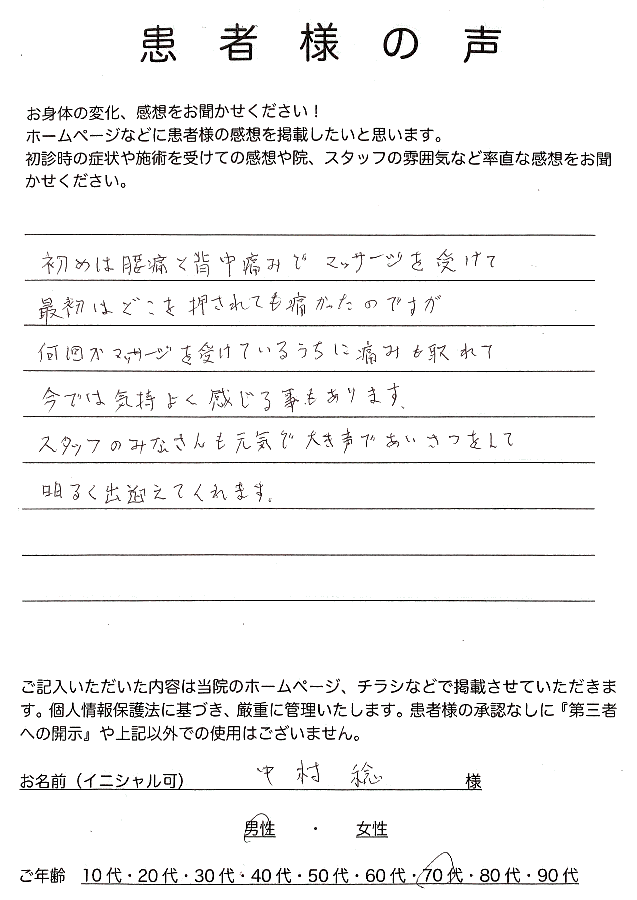 患者様の声
お身体の変化、感想をお聞かせください！
ホームページなどに患者様の感想を掲載したいと思います。
初診時の症状や施術を受けての感想や院、スタッフの雰囲気など率直な感想をお聞
かせください。
初めは腰痛と背中痛みで マッサージを受けて
最初はどこを押されても痛かったのですが
何回かマッサージを受けているうちに痛みも取れて
今では気持よく感じる事もあります。
スタッフのみなさんも元気で大き声であいさつをして
明るく出迎えてくれます。
ご記入いただいた内容は当院のホームページ、チラシなどで掲載させていただきま
す。個人情報保護法に基づき、厳重に管理いたします。患者様の承認なしに『第三者
への開示』や上記以外での使用はございません。
お名前（イニシャル可） 中村 稔 様
男性 ・ 女性
ご年齢 10代・20代・30代・40代・50代・60代・70代・80代・90代